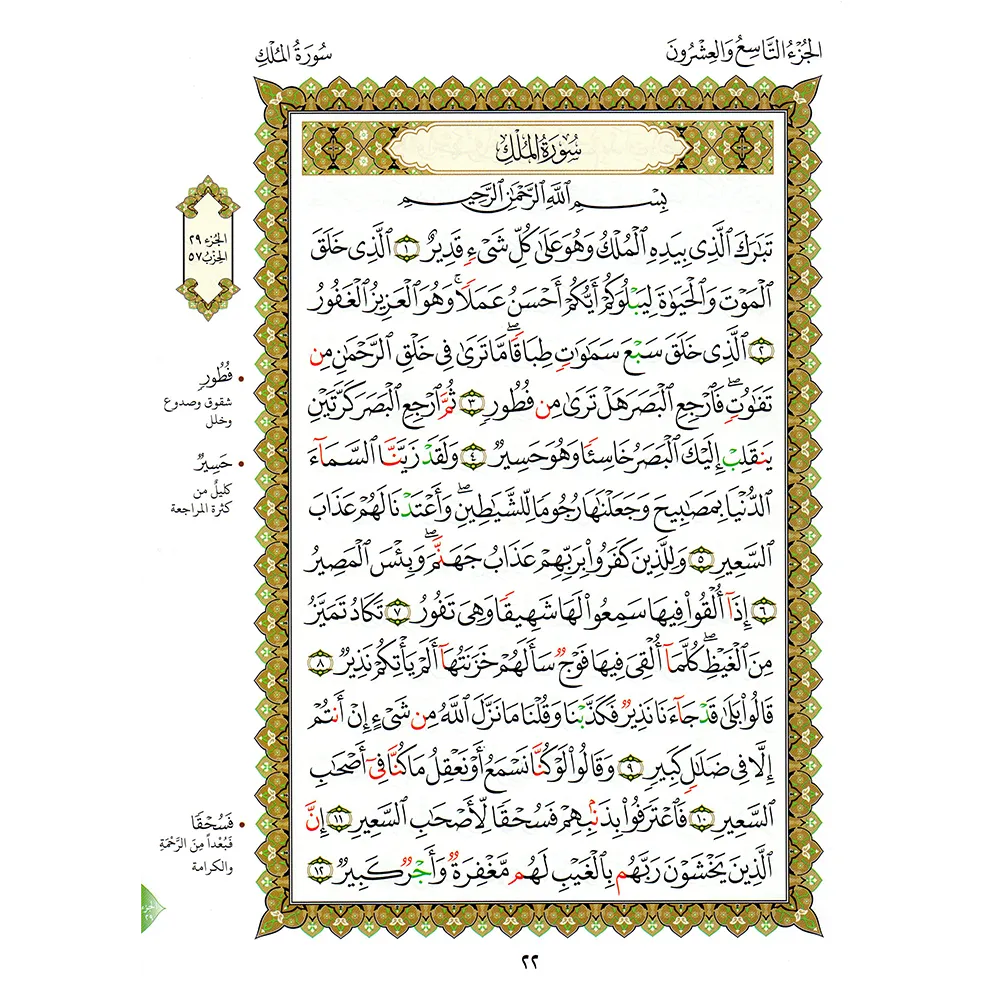 الجُزْءُ التَّاسِعُ وَالعِشْرُونَ
سُورَةُ المُلْكِ
سُورَةُ المُلْكِ
بِسْمِ ٱللَّهِ ٱلرَّحْمَٰنِ ٱلرَّحِيمِ
تَبَٰرَكَ ٱلَّذِى بِيَدِهِ ٱلْمُلْكُ وَهُوَ عَلَىٰ كُلِّ شَىْءٍ قَدِيرٌ ١ ٱلَّذِى خَلَقَ
ٱلْمَوْتَ وَٱلْحَيَوٰةَ لِيَبْلُوَكُمْ أَيُّكُمْ أَحْسَنُ عَمَلًا ۚ وَهُوَ ٱلْعَزِيزُ ٱلْغَفُورُ
٢ ٱلَّذِى خَلَقَ سَبْعَ سَمَٰوَٰتٍ طِبَاقًا ۖ مَّا تَرَىٰ فِى خَلْقِ ٱلرَّحْمَٰنِ مِن
تَفَٰوُتٍ ۖ فَٱرْجِعِ ٱلْبَصَرَ هَلْ تَرَىٰ مِن فُطُورٍ ٣ ثُمَّ ٱرْجِعِ ٱلْبَصَرَ كَرَّتَيْنِ
يَنقَلِبْ إِلَيْكَ ٱلْبَصَرُ خَاسِئًا وَهُوَ حَسِيرٌ ٤ وَلَقَدْ زَيَّنَّا ٱلسَّمَآءَ
ٱلدُّنْيَا بِمَصَٰبِيحَ وَجَعَلْنَٰهَا رُجُومًا لِّلشَّيَٰطِينِ ۖ وَأَعْتَدْنَا لَهُمْ عَذَابَ
ٱلسَّعِيرِ ٥ وَلِلَّذِينَ كَفَرُوا۟ بِرَبِّهِمْ عَذَابُ جَهَنَّمَ ۖ وَبِئْسَ ٱلْمَصِيرُ
٦ إِذَآ أُلْقُوا۟ فِيهَا سَمِعُوا۟ لَهَا شَهِيقًا وَهِىَ تَفُورُ ٧ تَكَادُ تَمَيَّزُ
مِنَ ٱلْغَيْظِ ۖ كُلَّمَآ أُلْقِىَ فِيهَا فَوْجٌ سَأَلَهُمْ خَزَنَتُهَآ أَلَمْ يَأْتِكُمْ نَذِيرٌ ٨
قَالُوا۟ بَلَىٰ قَدْ جَآءَنَا نَذِيرٌ فَكَذَّبْنَا وَقُلْنَا مَا نَزَّلَ ٱللَّهُ مِن شَىْءٍ إِنْ أَنتُمْ
إِلَّا فِى ضَلَٰلٍ كَبِيرٍ ٩ وَقَالُوا۟ لَوْ كُنَّا نَسْمَعُ أَوْ نَعْقِلُ مَا كُنَّا فِىٓ أَصْحَٰبِ
ٱلسَّعِيرِ ١٠ فَٱعْتَرَفُوا۟ بِذَنۢبِهِمْ فَسُحْقًا لِّأَصْحَٰبِ ٱلسَّعِيرِ ١١ إِنَّ
ٱلَّذِينَ يَخْشَوْنَ رَبَّهُم بِٱلْغَيْبِ لَهُم مَّغْفِرَةٌ وَأَجْرٌ كَبِيرٌ ١٢
الجُزء ٢٩
الحِزبُ ٥٧
• فُطُورٍ
شقوق وصدوع
وخلل
• حَسِيرٌ
كليلٌ من
كثرة المراجعة
• فَسُحْقًا
فَبُعْداً مِنَ الرَّحْمَةِ
والكرامة
جزء
٢٩
٢٢